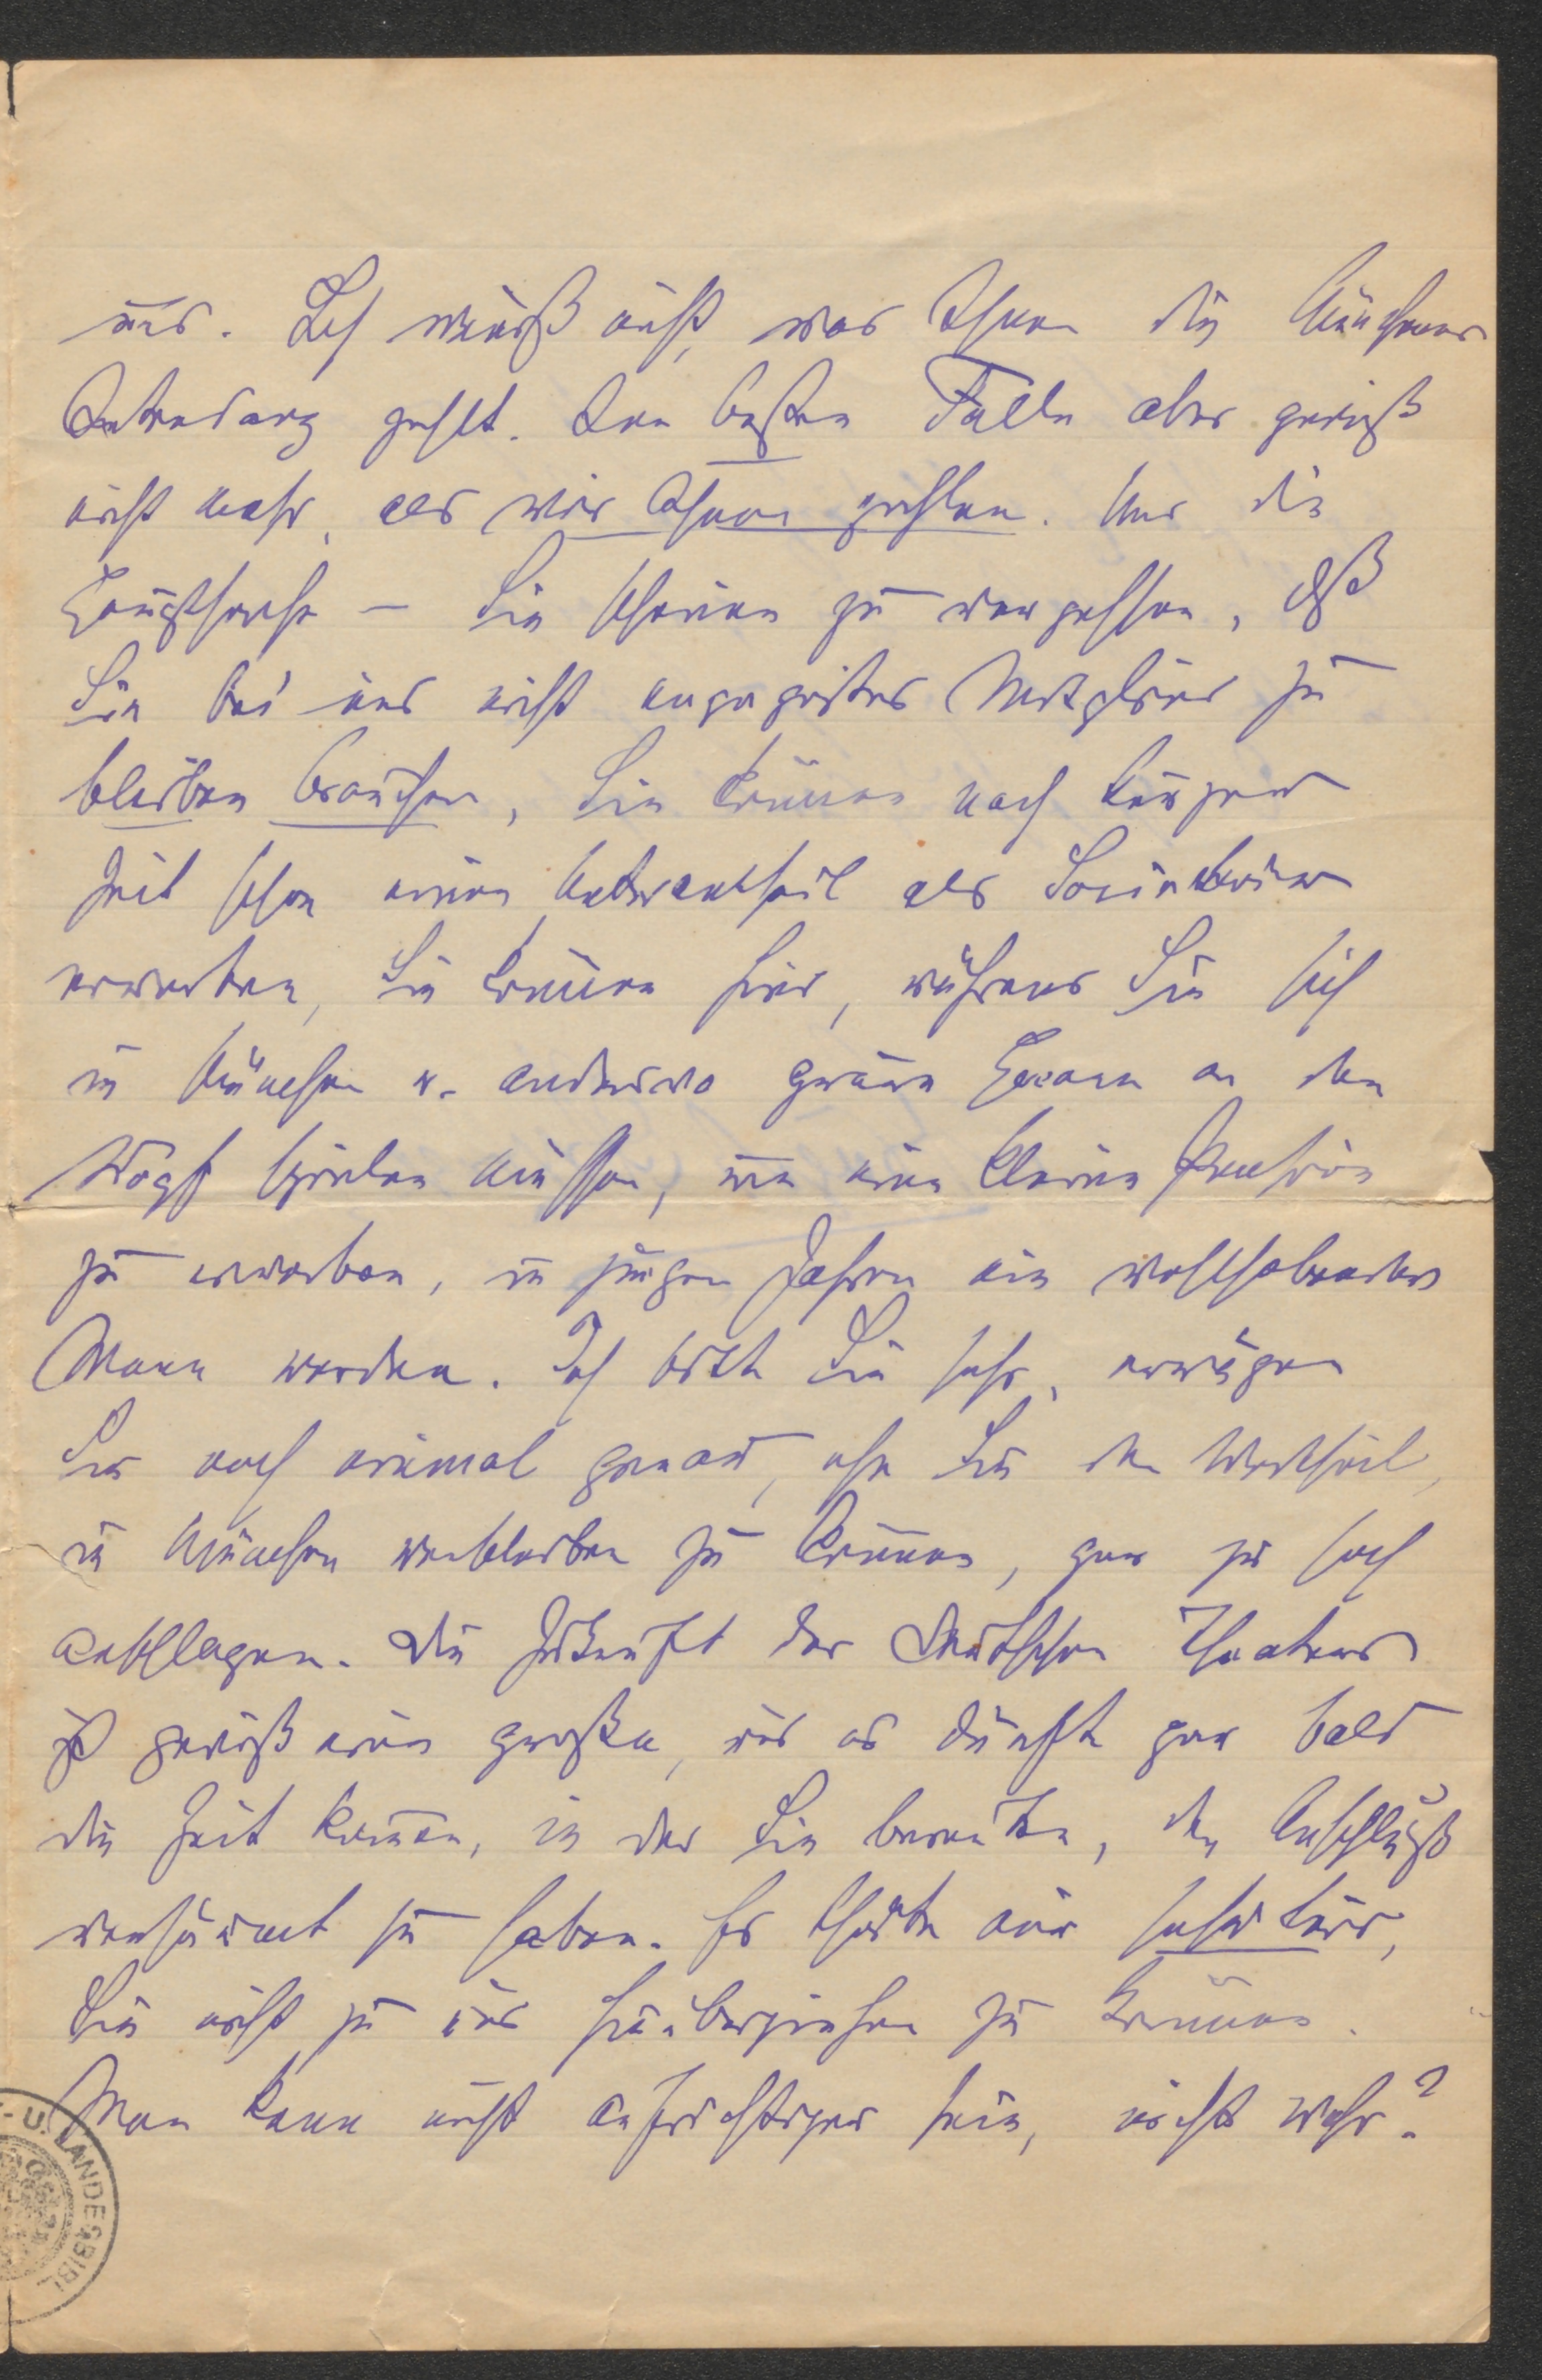 uns. Ich weiß nicht, was Ihnen die Münchener
Intendanz zahlt. Im besten Falle aber gewiß
nicht mehr, als wir Ihnen zahlen. Und die
Hauptsache – Sie scheinen zu vergessen, daß
Sie bei uns nicht engagirtes Mitglied zu
bleiben brauchen, Sie können nach kurzer
Zeit schon einen Unterantheil als Societär
erwerben, Sie können hier, während Sie sich
in München u. anderswo graue Haare an den
Kopf spielen müssen, um eine kleine Pension
zu erwerben, in jungen Jahren ein wohlhabender
Mann werden. Ich bitte Sie sehr, erwägen
Sie noch einmal genau, ehe Sie den Vortheil,
in München verbleiben zu können, gar zu hoch
anschlagen. Die Zukunft des Deutschen Theaters
ist gewiß eine große, und es dürfte gar bald
die Zeit kommen, in der Sie bereuten, den Anschluß
versäumt zu haben. Es thäte mir sehr leid,
Sie nicht zu uns herüberziehen zu können.
Man kann nicht aufrichtiger sein, nicht wahr?
- U. LANDESBIBL